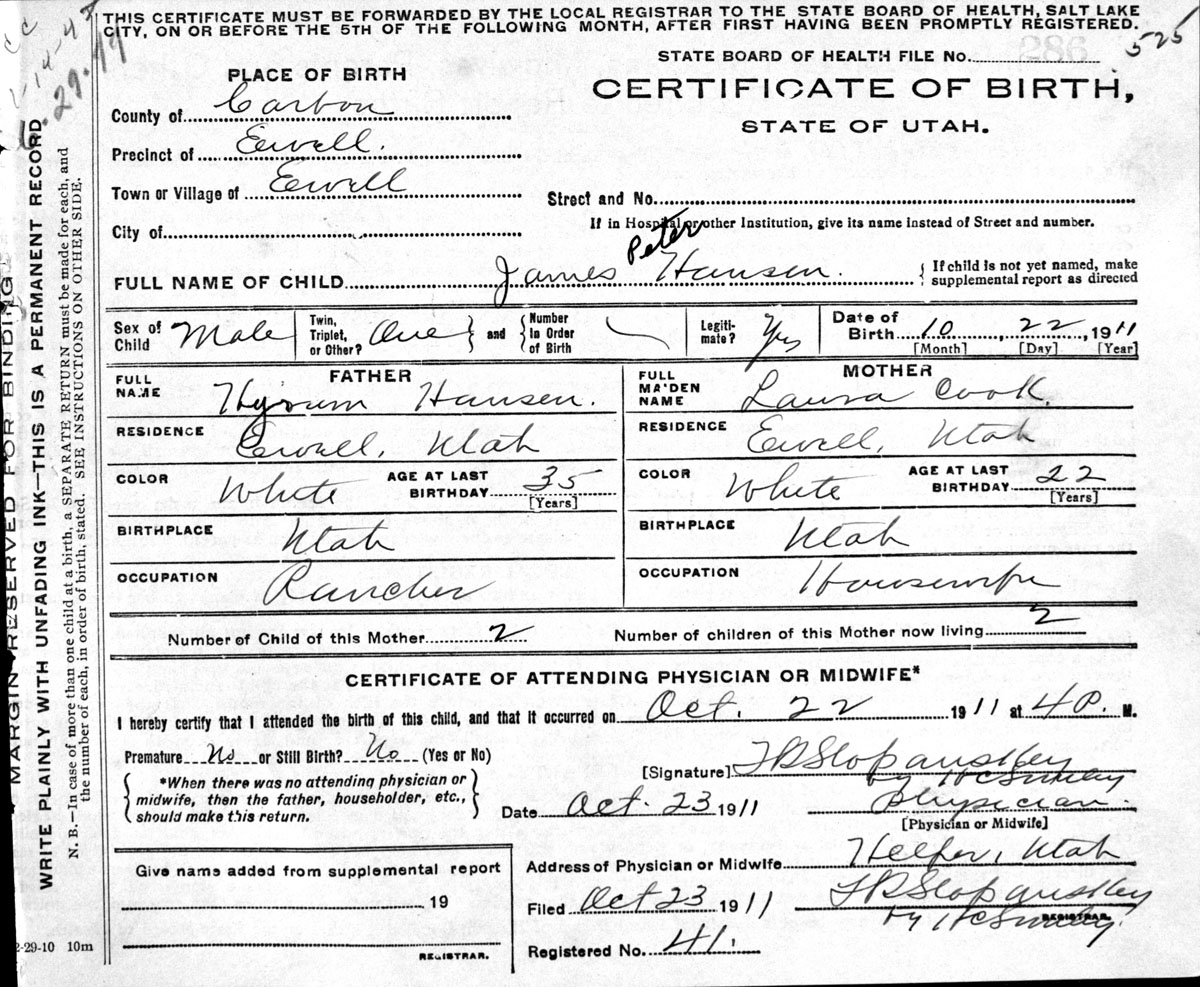 THIS CERTIFICATE MUST BE FORWARDED BY THE LOCAL REGISTRAR TO THE STATE BOARD OF HEALTH, SALT LAKE
CITY, ON OR BEFORE THE 5TH OF THE FOLLOWING MONTH, AFTER FIRST HAVING BEEN PROMPTLY REGISTERED.
525
STATE BOARD OF HEALTH FILE No. 286
CERTIFICATE OF BIRTH,
STATE OF UTAH.
PLACE OF BIRTH
County of Carbon
Precinct of Ewell.
Town or Village of Ewell
City of
Street and No.
If in Hospital or other Institution, give its name instead of Street and number.
Peter
FULL NAME OF CHILD James Hansen.
{ If child is not yet named, make
supplemental report as directed
Sex of Child Male
Twin, Triplet, or Other? One
and
Number in Order of Birth
Legiti-mate? Yes
Date of Birth 10, 22, 1911
[Month] [Day] [Year]
FATHER
FULL NAME Hyrum Hansen.
RESIDENCE Ewell, Utah
COLOR White AGE AT LAST BIRTHDAY 35 [Years]
BIRTHPLACE Utah
OCCUPATION Rancher
MOTHER
FULL MAIDEN NAME Laura Cook.
RESIDENCE Ewell, Utah
COLOR White AGE AT LAST BIRTHDAY 22 [Years]
BIRTHPLACE Utah
OCCUPATION Housewife
Number of Child of this Mother 2 Number of children of this Mother now living 2
CERTIFICATE OF ATTENDING PHYSICIAN OR MIDWIFE*
I hereby certify that I attended the birth of this child, and that it occurred on Oct. 22 1911 at 4 P. M.
Premature No or Still Birth? No (Yes or No)
*When there was no attending physician or
midwife, then the father, householder, etc.,
should make this return.
[Signature]
Date Oct. 23 1911 Physician.
[Physician or Midwife]
Give name added from supplemental report
19
REGISTRAR.
Address of Physician or Midwife Helper, Utah
Filed Oct 23 1911
REGISTRAR.
Registered No. 41.
2-29-10 10m
MARGIN RESERVED FOR BINDING
WRITE PLAINLY WITH UNFADING INK—THIS IS A PERMANENT RECORD
N. B.—In case of more than one child at a birth, a SEPARATE RETURN must be made for each, and
the number of each, in order of birth, stated. SEE INSTRUCTIONS ON OTHER SIDE.